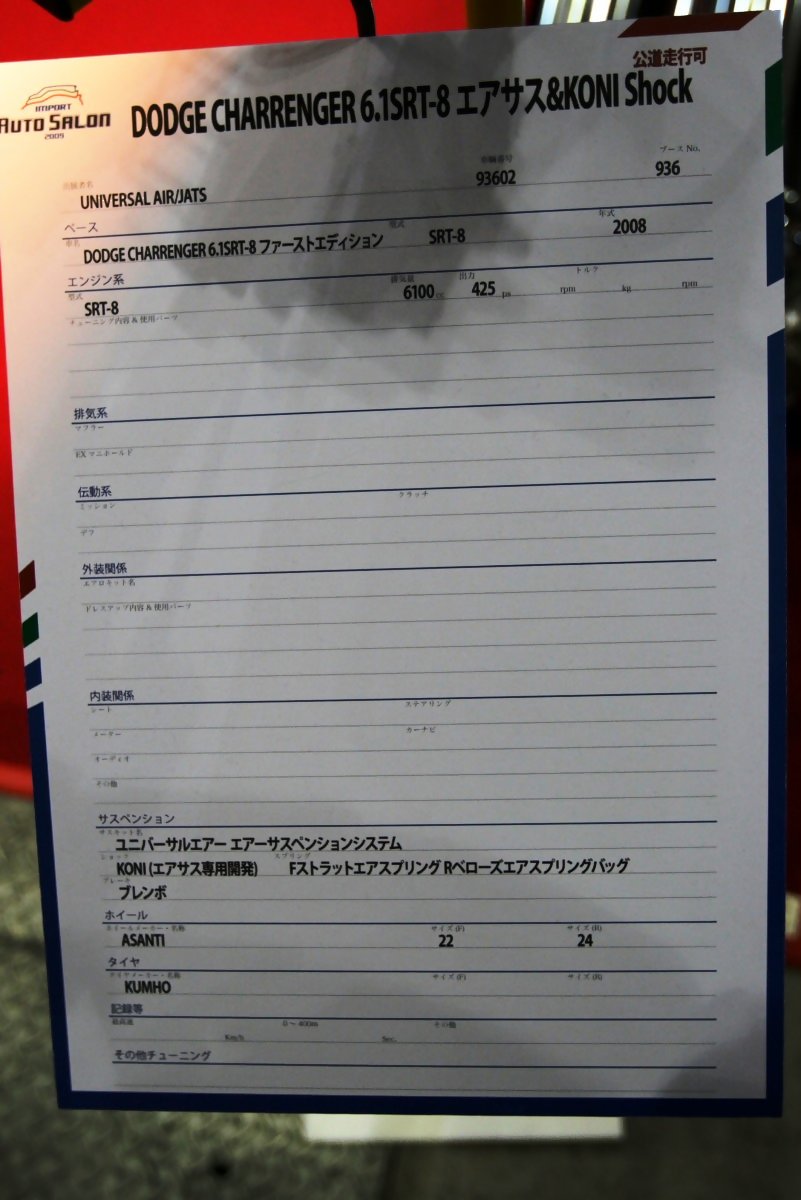 公道走行可
IMPORT
AUTO SALON
2009
DODGE CHARRENGER 6.1SRT-8 エアサス&KONI Shock
出展者名 車輌番号 ブース No.
UNIVERSAL AIR/JATS 93602 936
ベース
車名 型式 年式
DODGE CHARRENGER 6.1SRT-8 ファーストエディション SRT-8 2008
エンジン系
型式 排気量 出力 トルク
SRT-8 6100 cc 425 ps rpm kg rpm
チューニング内容 & 使用パーツ
排気系
マフラー
EX マニホールド
伝動系
ミッション クラッチ
デフ
外装関係
エアロキット名
ドレスアップ内容 & 使用パーツ
内装関係
シート ステアリング
メーター カーナビ
オーディオ
その他
サスペンション
サスキット名
ユニバーサルエアー エアーサスペンションシステム
ショック スプリング
KONI (エアサス専用開発) Fストラットエアスプリング Rベローズエアスプリングバッグ
ブレーキ
ブレンボ
ホイール
ホイールメーカー・名称 サイズ (F) サイズ (R)
ASANTI 22 24
タイヤ
タイヤメーカー・名称 サイズ (F) サイズ (R)
KUMHO
記録等
最高速 0～400m その他
Km/h Sec.
その他チューニング